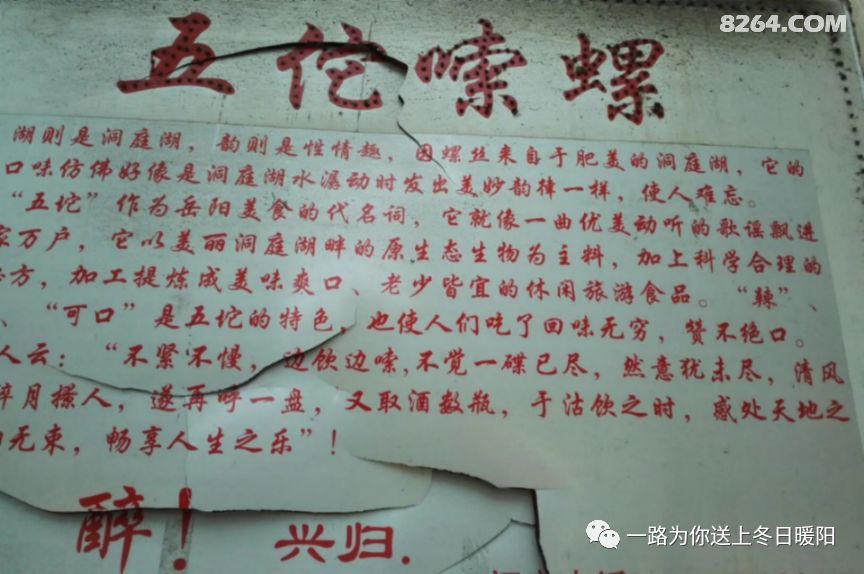 8264.COM
五佗嗦螺
湖则是洞庭湖，韵则是性情趣，因螺丝来自于肥美的洞庭湖，它的
口味仿佛好像是洞庭湖水漏动时发出美妙韵律一样，使人难忘。
“五坨”作为岳阳美食的代名词，它就像一曲优美动听的歌谣飘进
家万户，它以美丽洞庭湖畔的原生态生物为主料，加上科学合理的
方，加工提炼成美味爽口、老少皆宜的休闲旅游食品。“辣”、
、“可口”是五坨的特色，也使人们吃了回味无穷，赞不绝口。
人云：“不紧不慢，边饮边嗦，不觉一碟已尽，然意犹未尽，清风
醉月撩人，遂再呼一盘，又取酒数瓶，于沽饮之时，感处天地之
无束，畅享人生之乐”！
醉！兴归.
一路为你送上冬日暖阳